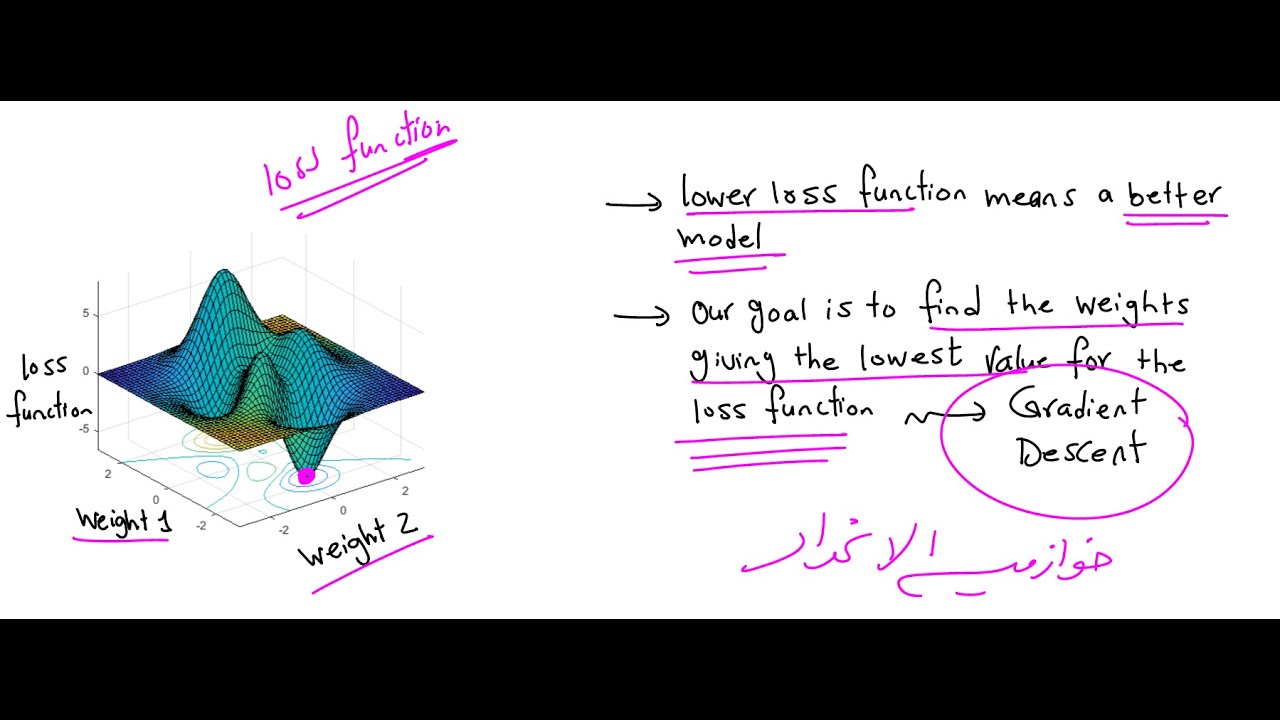 loss function
loss
function
5
0
-5
2
0
-2
-2
0
2
Weight 1
Weight 2
→ lower loss function means a better
model
→ Our goal is to find the weights
giving the lowest value for the
loss function → Gradient
Descent
خوارزمية الانحدار